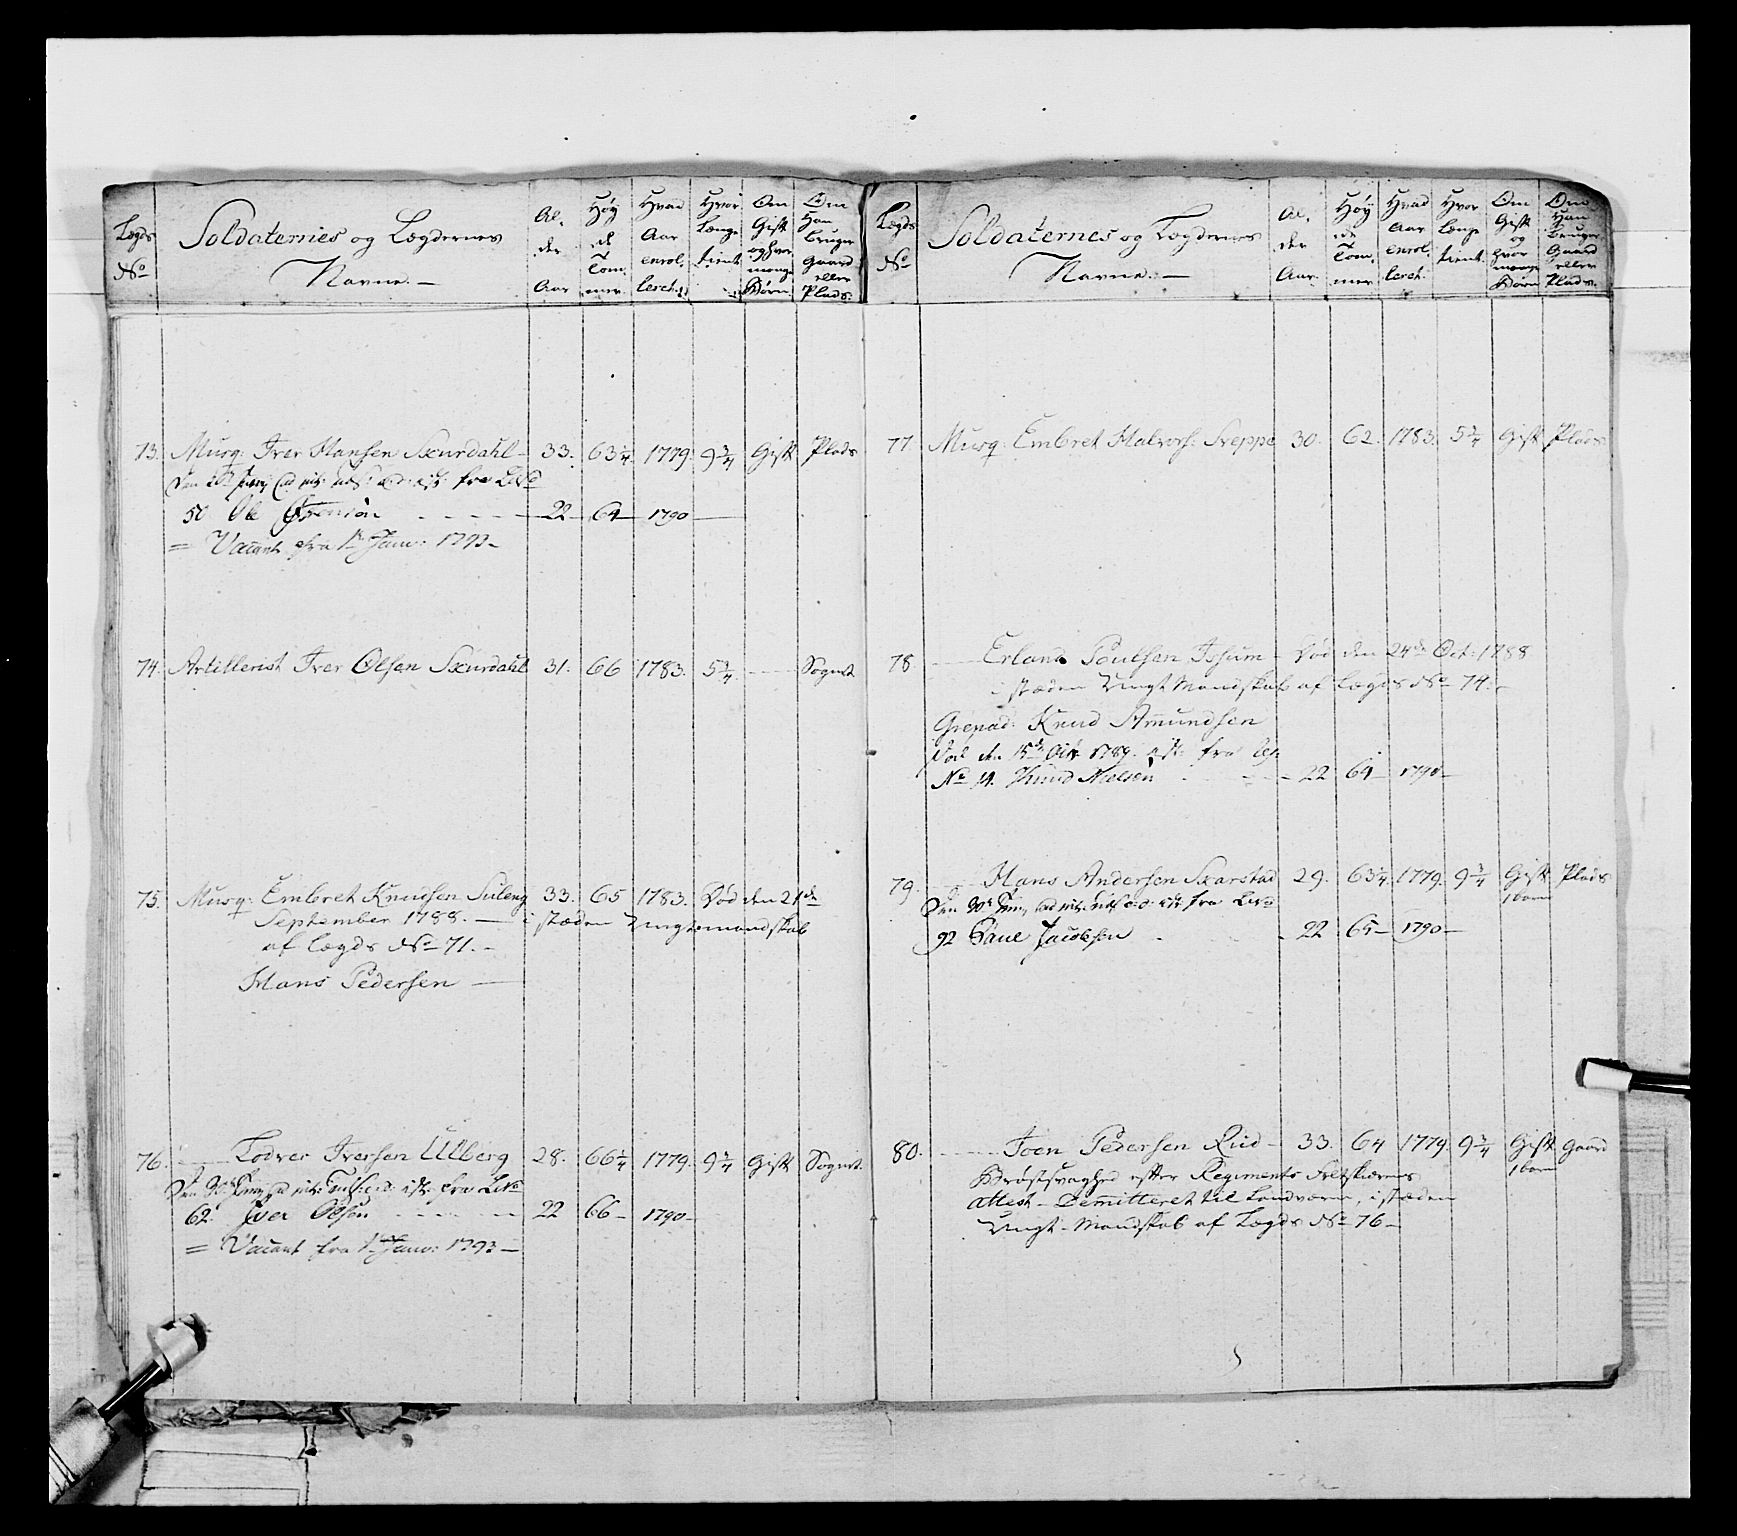 Lægds No
Soldaternes og Lægdernes Navne.
Al. der Aar
Høy de Tom mer.
Hvad Aar enrol. leret.
Hvor Længe tient
Om Gift og hvor mange Børn
Om Han Bruger Gaard eller Plads.
73. Musq: Iver Hansen Sxurdahl 33. 63 1/4 1779. 9 3/4 Gift Plads
fra
50 Ole 22 64 1790
= Vacant fra 1te Janv: 1793
74. Artillerist Iver Olsen Sxurdahl 31. 66 1783. 5 3/4 Sognet
75. Musq: Embret Knudsen Suleng 33. 65 1783. Død den 21de
September 1788. i stæden Ungt mandskab
af Lægds No 71.
Hans Pedersen
76. Todver Iversen Ulberg 28. 66 1/4 1779. 9 3/4 Gift Sognet
fra
62. Iver Olsen 22 66 1790
= Vacant fra 1te Janv: 1793
Lægds No
Soldaternes og Lægdernes Navne.
Al. der Aar.
Høy de Tom. mer
Hvad Aar enrol. leret.
Hvor Længe tient.
Om Gift og hvor mange Børn
Om Han Bruger Gaard eller Plads.
77. Musq: Embret Halvors: Sveppe 30. 62. 1783. 5 3/4 Gift Plads
78. Erland Poulsen Issum Død den 24de Oct: 1788
i stæden Ungt Mandskab af Lægds No 74.
Grenad: Knud Amundsen
Død den 15de 1789. fra
No 14. Knud Nielsen 22 64 1790
79. Hans Andersen Sxarstad 29. 63 1/4 1779. 9 3/4 Gift Plads
1 barn
fra
92 Jacobsen 22 65 1790
80. Joen Pedersen Rud 33. 64 1779. 9 3/4 Gift Gaard
1 barn
Brøstsvaghed efter Regiments Feltskiærens
attest Demitteret til Landværn, i stæden
Ungt Mandskab af Lægds No 76